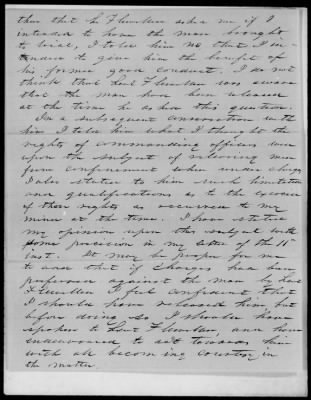 then that Lt Flewellen asked me if I
intended to have the man brought
to trial, I told him no that I in-
tended to give him the benefit of
his former good conduct. I do not
think that Lieut Flewellen was aware
that the man had been released
at the time he asked this question.
In a subsequent conversation with
him I told him what I thought the
rights of commanding officers were
upon the subject of releasing men
from confinement when under charges
I also stated to him such limitations
and qualifications as to the exercise
of those rights as occurred to my
mind at the time. I have stated
my opinion upon this subject with
some precision in my letter of the 11th
inst. It may be proper for me
to add that if charges had been
preferred against the man by Lieut
Flewellen I feel confident that
I should have released him but
before doing so I should have
spoken to Lieut Flewellen, and have
endeavoured to act towards him
with all becoming courtesy in
the matter.